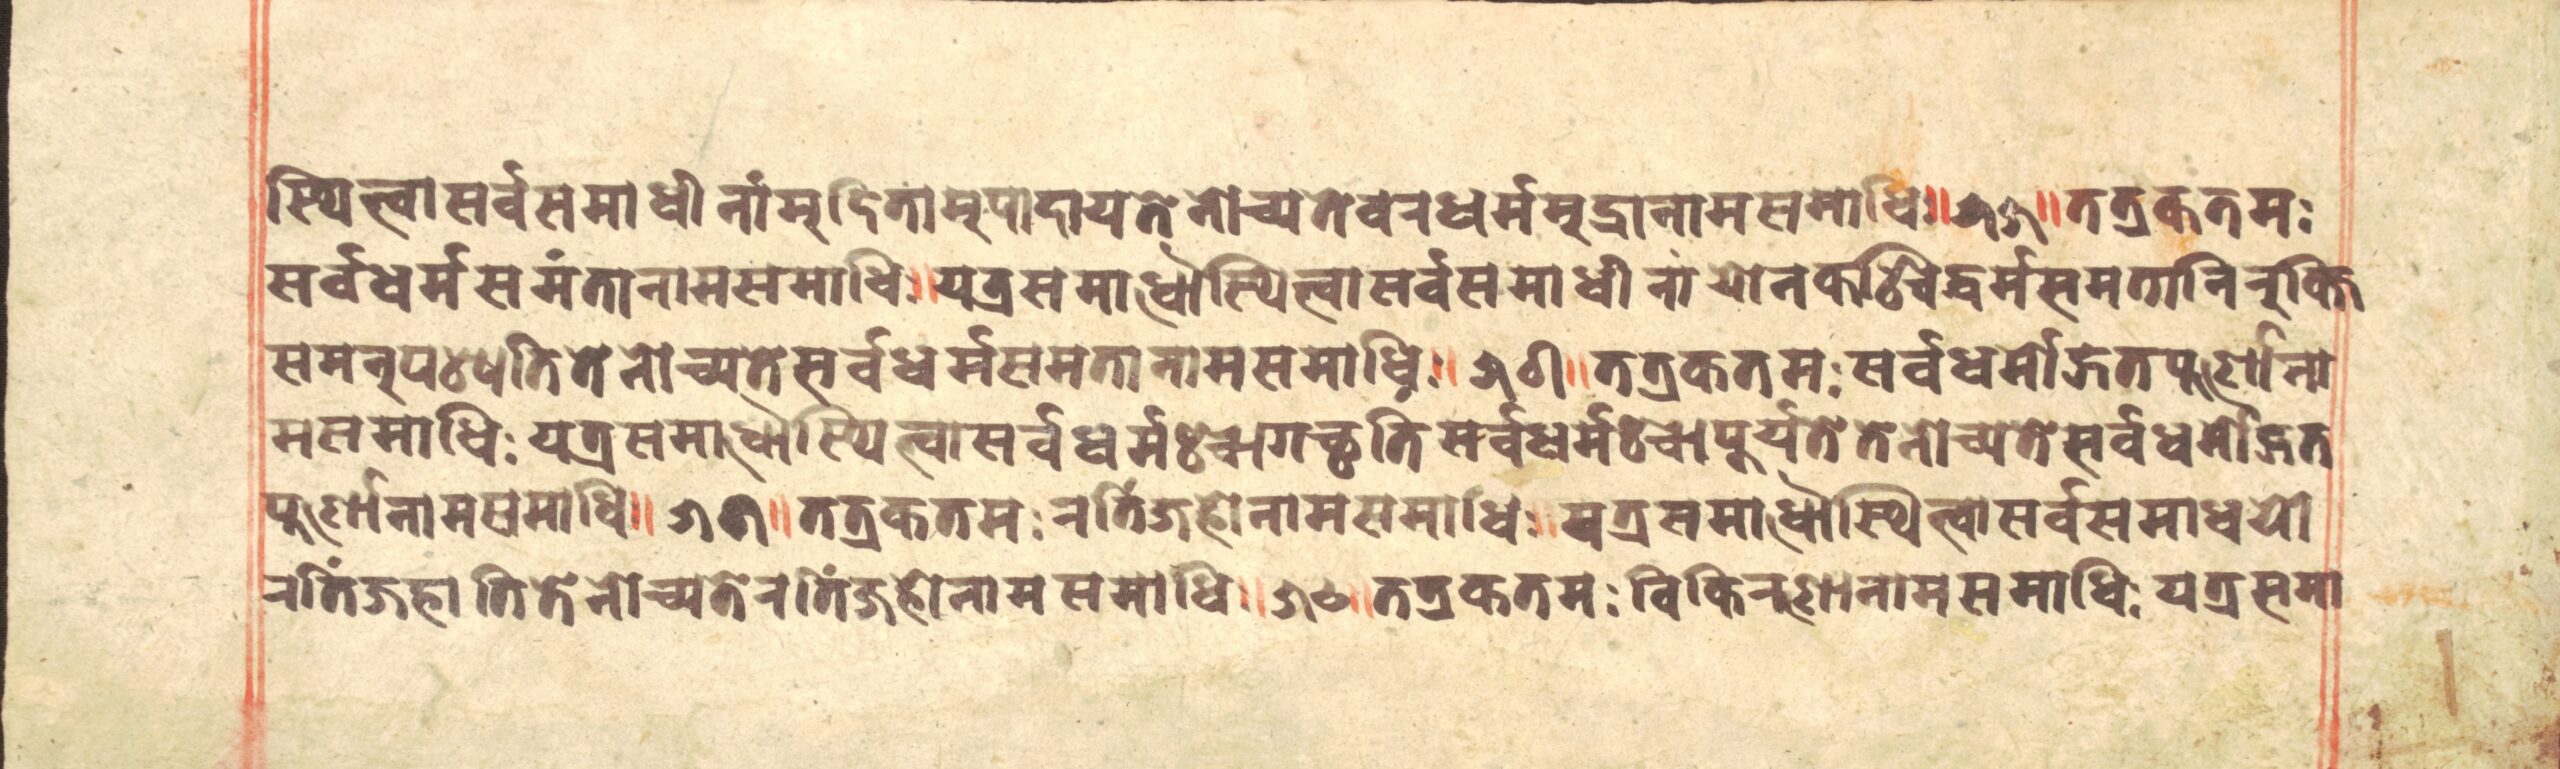 स्थित्वासर्वसमाधीनांमुदितामुपादायतेनोच्यतेवरधर्ममुद्रानामसमाधिः॥ ॥तत्रकतमः
सर्वधर्मसमंतानामसमाधिः॥यत्रसमाधौस्थित्वासर्वसमाधीनांयोनकश्चिद्धर्मसमतानिरुक्ति
समनुपश्यतितेनोच्यतेसर्वधर्मसमतानामसमाधिः॥ ॥तत्रकतमःसर्वधर्मोद्गतपूर्णोना
मसमाधिःयत्रसमाधौस्थित्वासर्वधर्मश्चागच्छतिसर्वधर्मश्चापूर्यतेतेनोच्यतेसर्वधर्मोद्गत
पूर्णोनामसमाधिः॥ ॥तत्रकतमःरतिंजहोनामसमाधिः॥यत्रसमाधौस्थित्वासर्वसमाधयो
रतिंजहातितेनोच्यतेरतिंजहोनामसमाधिः॥ ॥तत्रकतमःविकिरणोनामसमाधिःयत्रसमा